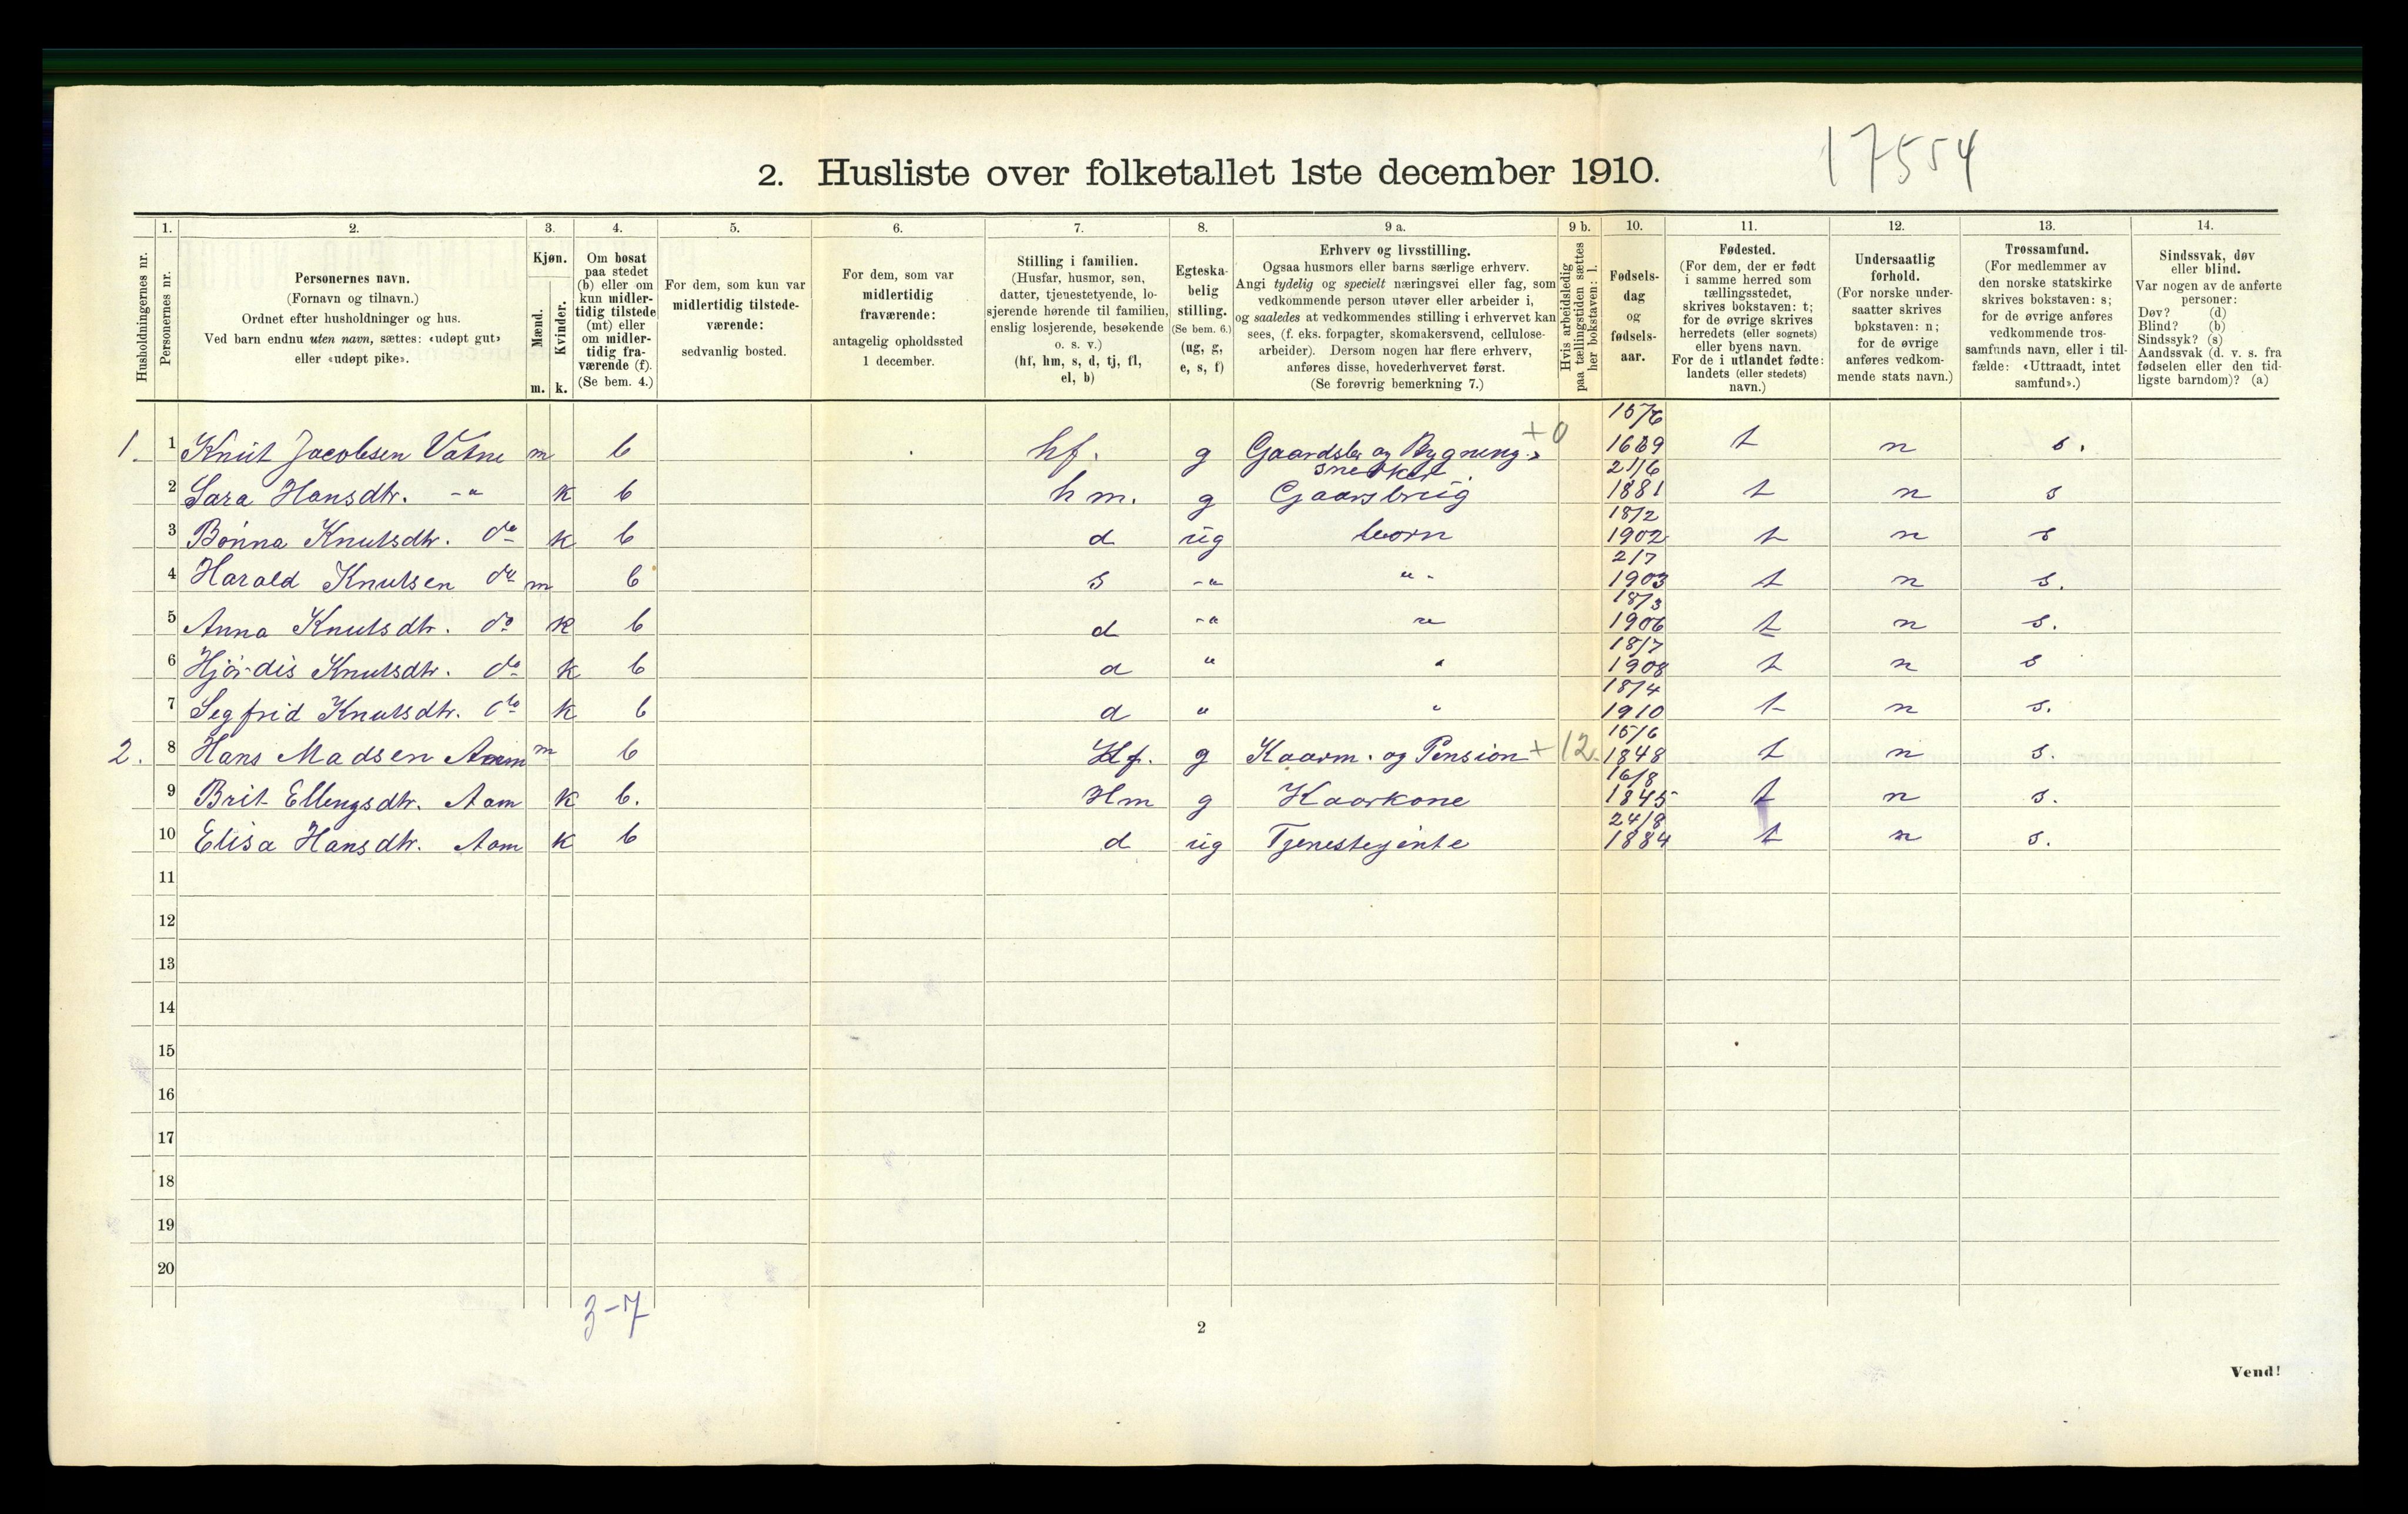 17554
2. Husliste over folketallet 1ste december 1910.
Husholdningernes nr.
1.
Personernes nr.
2.
Personernes navn.
(Fornavn og tilnavn.)
Ordnet efter husholdninger og hus.
Ved barn endnu uten navn, sættes: «udøpt gut»
eller «udøpt pike».
3.
Kjøn.
Mænd.
Kvinder.
m. k.
4.
Om bosat
paa stedet
(b) eller om
kun midler-
tidig tilstede
(mt) eller
om midler-
tidig fra-
værende (f).
(Se bem. 4.)
5.
For dem, som kun var
midlertidig tilstede-
værende:
sedvanlig bosted.
6.
For dem, som var
midlertidig
fraværende:
antagelig opholdssted
1 december.
7.
Stilling i familien.
(Husfar, husmor, søn,
datter, tjenestetyende, lo-
sjerende hørende til familien,
enslig losjerende, besøkende
o. s. v.)
(hf, hm, s, d, tj, fl,
el, b)
8.
Egteska-
belig
stilling.
(Se bem. 6.)
(ug, g,
e, s, f)
9 a.
Erhverv og livsstilling.
Ogsaa husmors eller barns særlige erhverv.
Angi tydelig og specielt næringsvei eller fag, som
vedkommende person utøver eller arbeider i,
og saaledes at vedkommendes stilling i erhvervet kan
sees, (f. eks. forpagter, skomakersvend, cellulose-
arbeider). Dersom nogen har flere erhverv,
anføres disse, hovederhvervet først.
(Se forøvrig bemerkning 7.)
9 b.
Hvis arbeidsledig
paa tællingstiden sættes
her bokstaven: l.
10.
Fødsels-
dag
og
fødsels-
aar.
11.
Fødested.
(For dem, der er født
i samme herred som
tællingsstedet,
skrives bokstaven: t;
for de øvrige skrives
herredets (eller sognets)
eller byens navn.
For de i utlandet fødte:
landets (eller stedets)
navn.)
12.
Undersaatlig
forhold.
(For norske under-
saatter skrives
bokstaven: n;
for de øvrige
anføres vedkom-
mende stats navn.)
13.
Trossamfund.
(For medlemmer av
den norske statskirke
skrives bokstaven: s;
for de øvrige anføres
vedkommende tros-
samfunds navn, eller i til-
fælde: «Uttraadt, intet
samfund».)
14.
Sindssvak, døv
eller blind.
Var nogen av de anførte
personer:
Døv? (d)
Blind? (b)
Sindssyk? (s)
Aandssvak (d. v. s. fra
fødselen eller den tid-
ligste barndom)? (a)
1. 1 Knut Jacobsen Vatne m b hf. g Gaardsbr og Bygning- snedker +0 15/6 t n s.
2 Sara Hansdtr. -"- k b hm. g Gaarsbrug 21/6 1881 t n s
3 Bonna Knutsdtr. do k b d ug born 18/2 1902 t n s
4 Harald Knutsen do m b s -" "- 2/7 1903 t n s.
5 Anna Knutsdtr. do k b d -" " 18/3 1906 t n s.
6 Hjördis Knutsdtr. do k b d " " 18/7 1908 t n s
7 Segfrid Knutsdtr. do k b d " " 18/4 1910 t n s.
2. 8 Hans Madsen Aam m b Hf. g Kaarm. og Pension +12. 15/6 1848 t n s.
9 Brit Ellengsdtr. Aam k b. Hm g Kaarkone 16/8 1845 t n s.
10 Elisa Hansdtr. Aam k b d ug Tjenestejente 24/8 1884 t n s.
11
12
13
14
15
16
17
18
19
20
3-7
2
Vend!